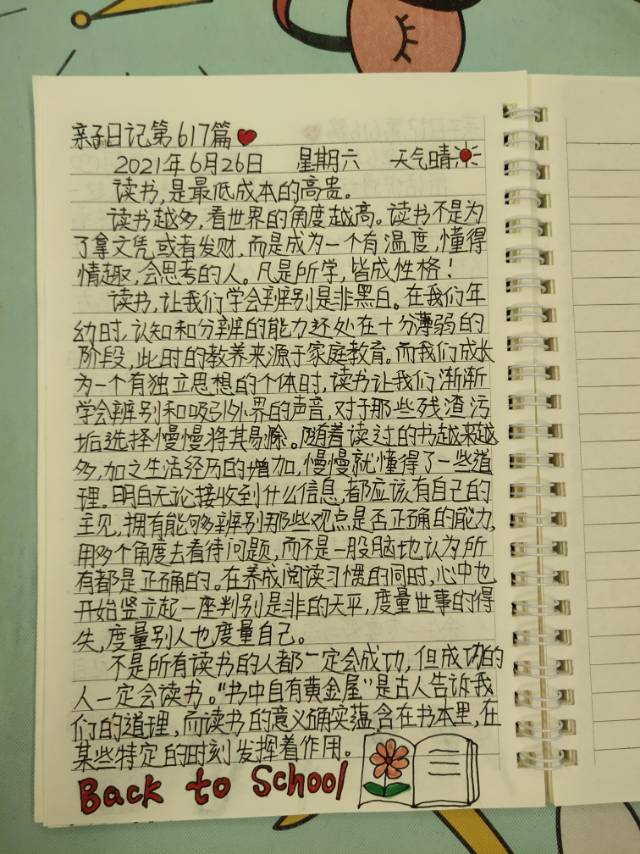 亲子日记第617篇
2021年6月26日 星期六 天气晴
读书,是最低成本的高贵。
读书越多,看世界的角度越高。读书不是为
了拿文凭,或者发财,而是成为一个有温度,懂得
情趣,会思考的人。凡是所学,皆成性格!
读书,让我们学会辨别是非黑白。在我们年
幼时,认知和分辨的能力还处在十分薄弱的
阶段,此时的教养来源于家庭教育。而我们成长
为一个有独立思想的个体时,读书让我们渐渐
学会辨别和吸引外界的声音,对于那些残渣污
垢选择慢慢将其剔除。随着读过的书越来越
多,加之生活经历的增加,慢慢就懂得了一些道
理。明白无论接收到什么信息,都应该有自己的
主见,拥有能够辨别那些观点是否正确的能力,
用多个角度去看待问题,而不是一股脑地认为所
有都是正确的。在养成阅读习惯的同时,心中也
开始竖立起一座判别是非的天平,度量世事的得
失,度量别人也度量自己。
不是所有读书的人都一定会成功,但成功的
人一定会读书。“书中自有黄金屋”是古人告诉我
们的道理,而读书的意义确实蕴含在书本里,在
某些特定的时刻发挥着作用。
Back to School